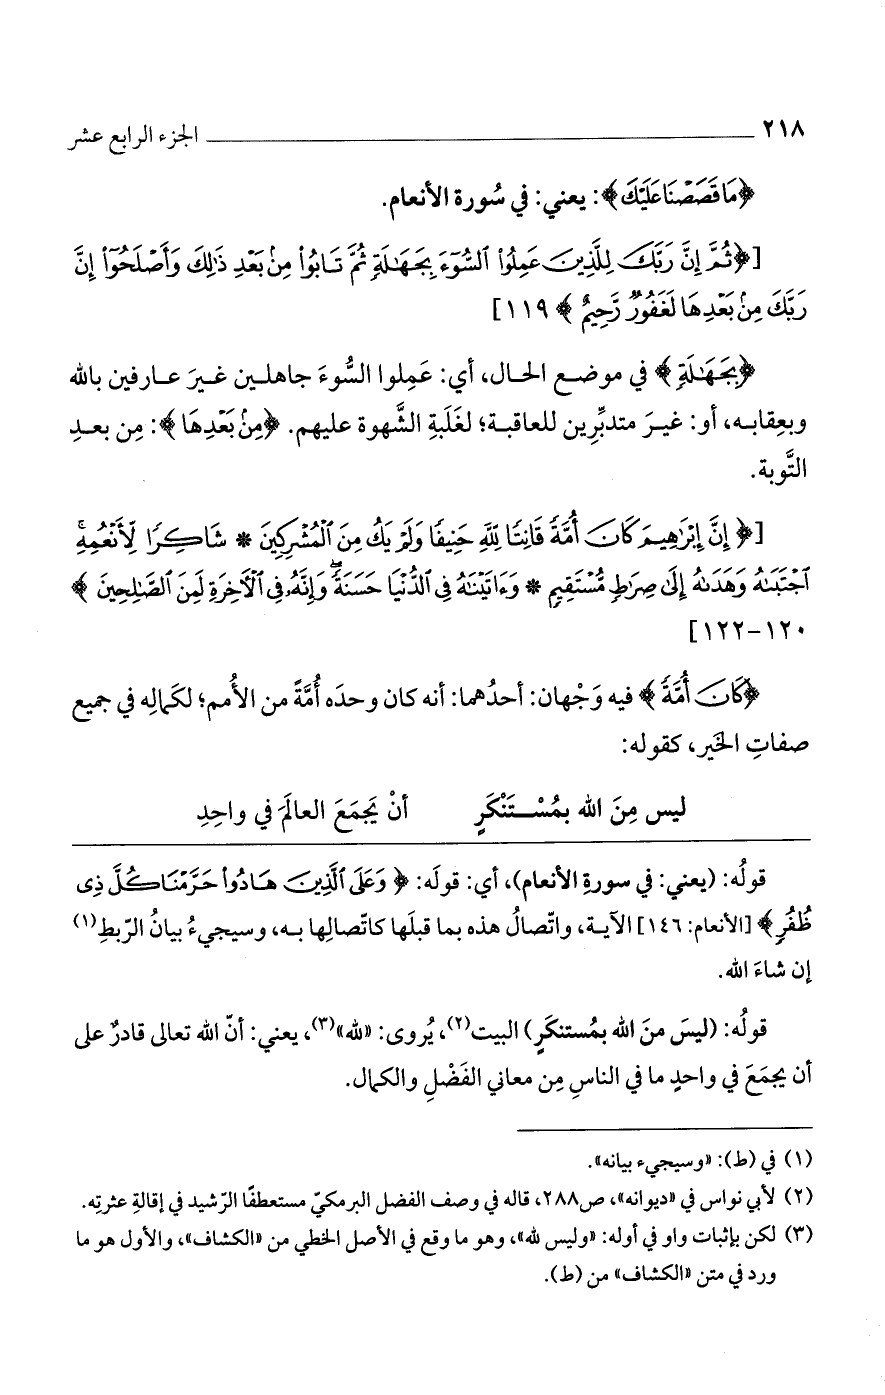 ٢١٨ الجزء الرابع عشر
﴿مَا قَصَصْنَا عَلَيْكَ﴾: يعني: في سُورة الأنعام.
[﴿ثُمَّ إِنَّ رَبَّكَ لِلَّذِينَ عَمِلُوا۟ ٱلسُّوٓءَ بِجَهَٰلَةٍ ثُمَّ تَابُوا۟ مِنۢ بَعْدِ ذَٰلِكَ وَأَصْلَحُوٓا۟ إِنَّ
رَبَّكَ مِنۢ بَعْدِهَا لَغَفُورٌ رَّحِيمٌ﴾ ١١٩]
﴿بِجَهَٰلَةٍ﴾ في موضع الحال، أي: عَمِلوا السُّوءَ جاهلين غيرَ عارفين بالله
وبعِقابه، أو: غيرَ متدبِّرين للعاقبة؛ لغَلَبةِ الشَّهوة عليهم. ﴿مِنۢ بَعْدِهَا﴾: مِن بعدِ
التَّوبة.
[﴿إِنَّ إِبْرَٰهِيمَ كَانَ أُمَّةً قَانِتًا لِلَّهِ حَنِيفًا وَلَمْ يَكُ مِنَ ٱلْمُشْرِكِينَ * شَاكِرًا لِّأَنْعُمِهِ ۚ
ٱجْتَبَىٰهُ وَهَدَىٰهُ إِلَىٰ صِرَٰطٍ مُّسْتَقِيمٍ * وَءَاتَيْنَٰهُ فِى ٱلدُّنْيَا حَسَنَةً ۖ وَإِنَّهُۥ فِى ٱلْءَاخِرَةِ لَمِنَ ٱلصَّٰلِحِينَ﴾
١٢٠-١٢٢]
﴿كَانَ أُمَّةً﴾ فيه وَجْهان: أحدُهما: أنه كان وحدَه أُمَّةً من الأُمم؛ لكَمالِه في جميع
صفاتِ الخَير، كقوله:
ليس مِنَ الله بمُسْتَنْكَرٍ أنْ يَجمَعَ العالَمَ في واحِدِ
قولُه: (يعني: في سورةِ الأنعام)، أي: قولَه: ﴿وَعَلَى ٱلَّذِينَ هَادُوا۟ حَرَّمْنَا كُلَّ ذِى
ظُفُرٍ﴾ [الأنعام: ١٤٦] الآية، واتّصالُ هذه بما قبلَها كاتّصالِها به، وسيجيءُ بيانُ الرّبطِ(١)
إن شاءَ الله.
قولُه: (ليسَ منَ الله بمُستنكَرٍ) البيت(٢)، يُروى: «لله»(٣)، يعني: أنّ الله تعالى قادرٌ على
أن يجمَعَ في واحدٍ ما في الناسِ مِن معاني الفَضْلِ والكمال.
(١) في (ط): «وسيجيء بيانه».
(٢) لأبي نواس في «ديوانه»، ص٢٨٨، قاله في وصف الفضل البرمكيّ مستعطفًا الرّشيد في إقالةِ عثرتِه.
(٣) لكن بإثبات واو في أوله: «وليس لله»، وهو ما وقع في الأصل الخطي من «الكشاف»، والأول هو ما
ورد في متن «الكشاف» من (ط).